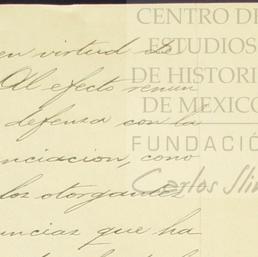 CENTRO DE
ESTUDIOS
DE HISTORI
DE MEXICO
FUNDACIÓ
Carlos Sli
en virtud de
Al efecto renun
defensa con la
nciacion, como
los otorgantes
uncias que ha